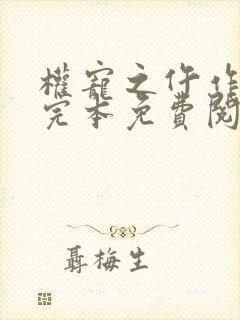 權寵之仵作
完本免費閱
聶梅生